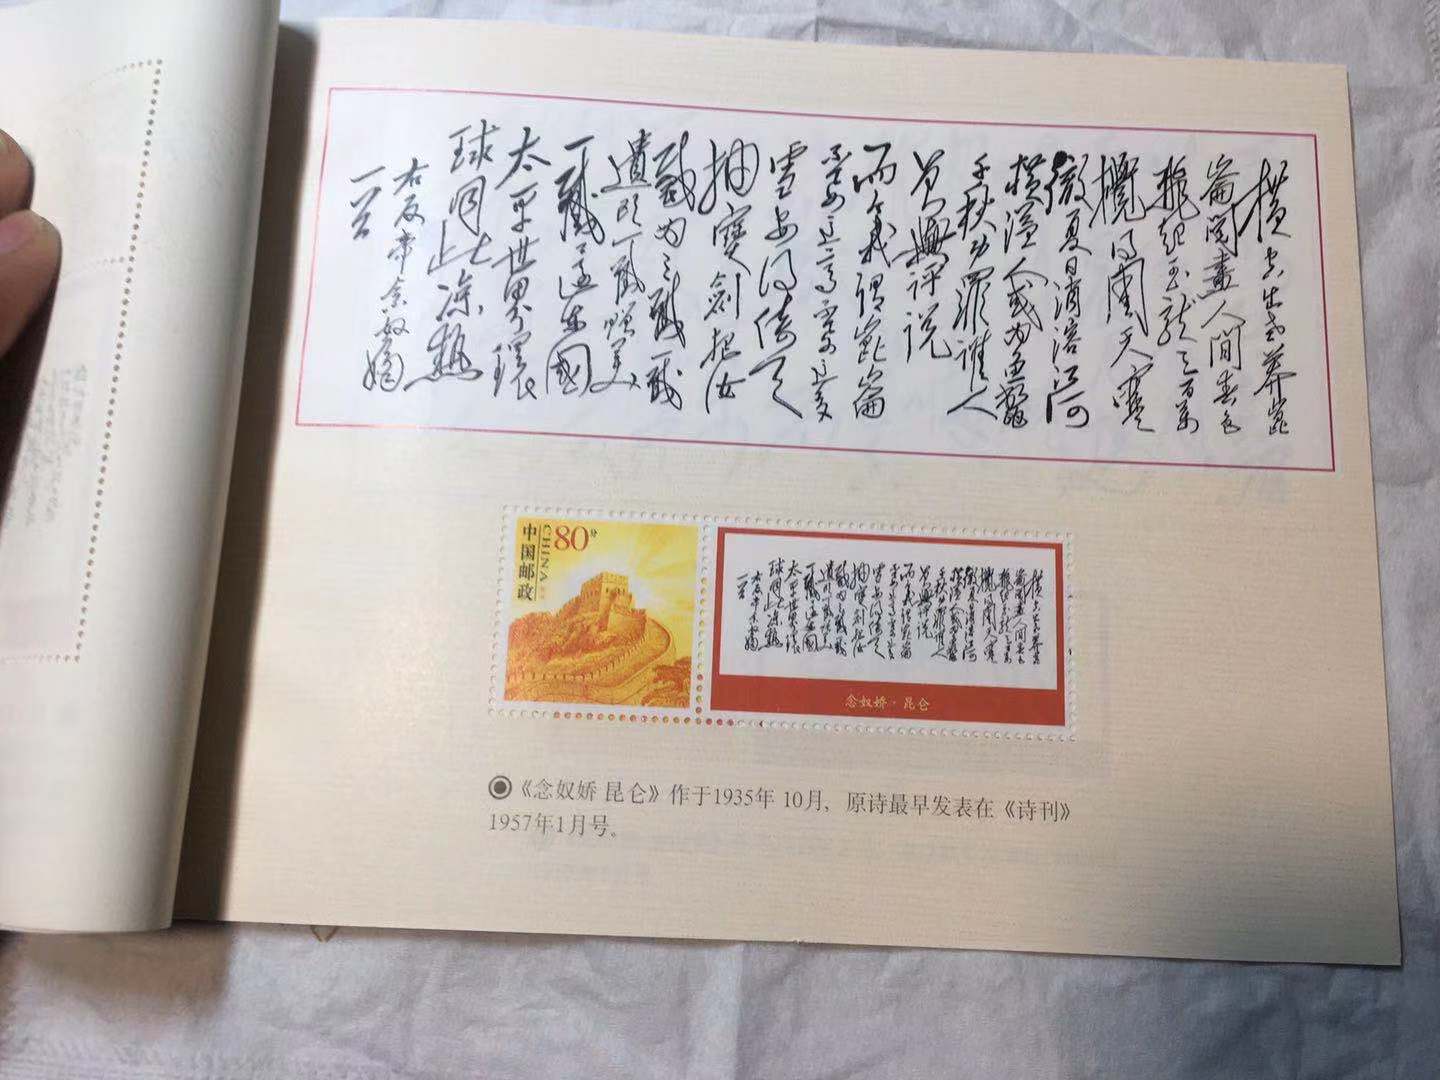 横空出世莽崑
崙閱盡人間春色
飛起玉龙三百萬
攪得周天寒
徹夏日消溶江河
横溢人或为鱼鼈
千秋功罪谁人
曾與评说
而今我谓崑崙
不要这高不要这多
雪安得倚天
抽寶劍把汝
裁为三截一截
遺欧一截赠美
一截还东國
太平世界環
球同此凉熱
右反帝念奴嬌
一首
中国邮政
CHINA
80分
念奴娇·昆仑
◉《念奴娇 昆仑》作于1935年 10月，原诗最早发表在《诗刊》
1957年1月号。